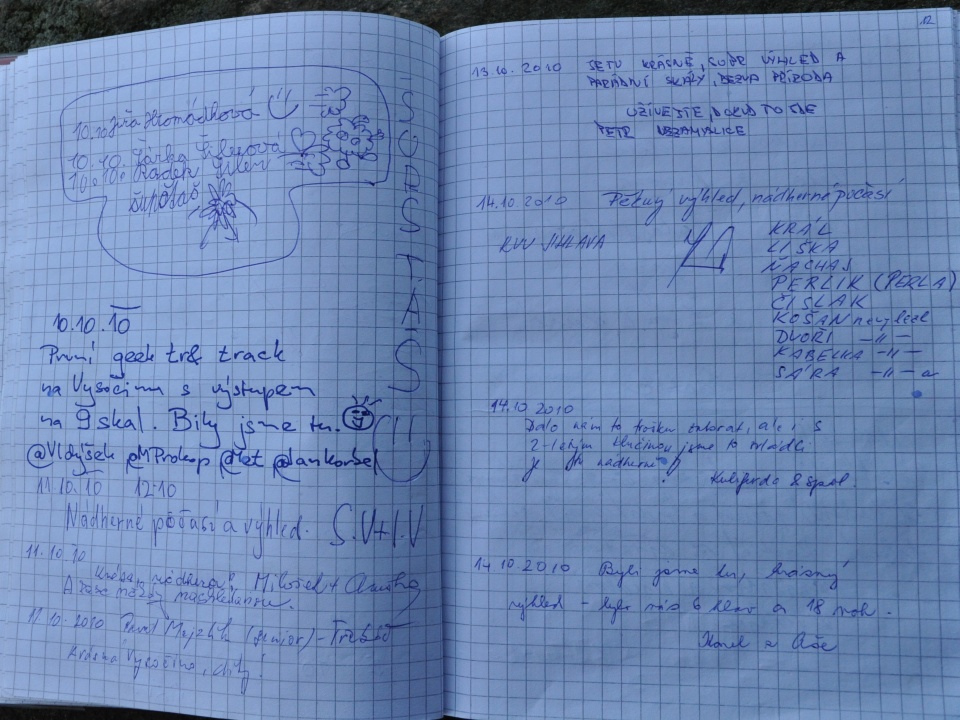 10.10. Jiřa Hromádková
10.10. Šárka
10.10. Radek
10.10.10
První geek tr& track
na Vysočinu s výstupem
na 9 skal. Bily jsme tu.
@Vldyšek @MProkop @Het @Jankorbel
11.10.10 12:10
Nádherné počasí a výhled. S.V+I.V
11.10.10
"Krása, nádhera", Milošek +
A zase mezi
12.10.2010 Pavel (senior) - Třebíč
Krásná Vysočina, díky!
12
13.10.2010 JE TU KRÁSNĚ, SUPR VÝHLED A
PARÁDNÍ SKÁLY, BEZVA PŘÍRODA
UŽÍVEJTE, DOKUD TO JDE
PETR
14.10 2010 Pěkný výhled, nádherné počasí
KVV JIHLAVA
KRÁL
LIŠKA
MACHAJ
PERLIK (PERLA)
ČISLAK
KOŠAN nevylezl
DVOŘI -"-
KABELKA -"-
SÁRA -"- a
14.10 2010
Dalo nám to trošku zabrat, ale i s
2-letým klučinou jsme to zvládli
je tu nádherně!
& spol.
14.10.2010 Byli jsme tu, krásný
výhled - bylo nás 6 hlav a 18 noh.
Karel a